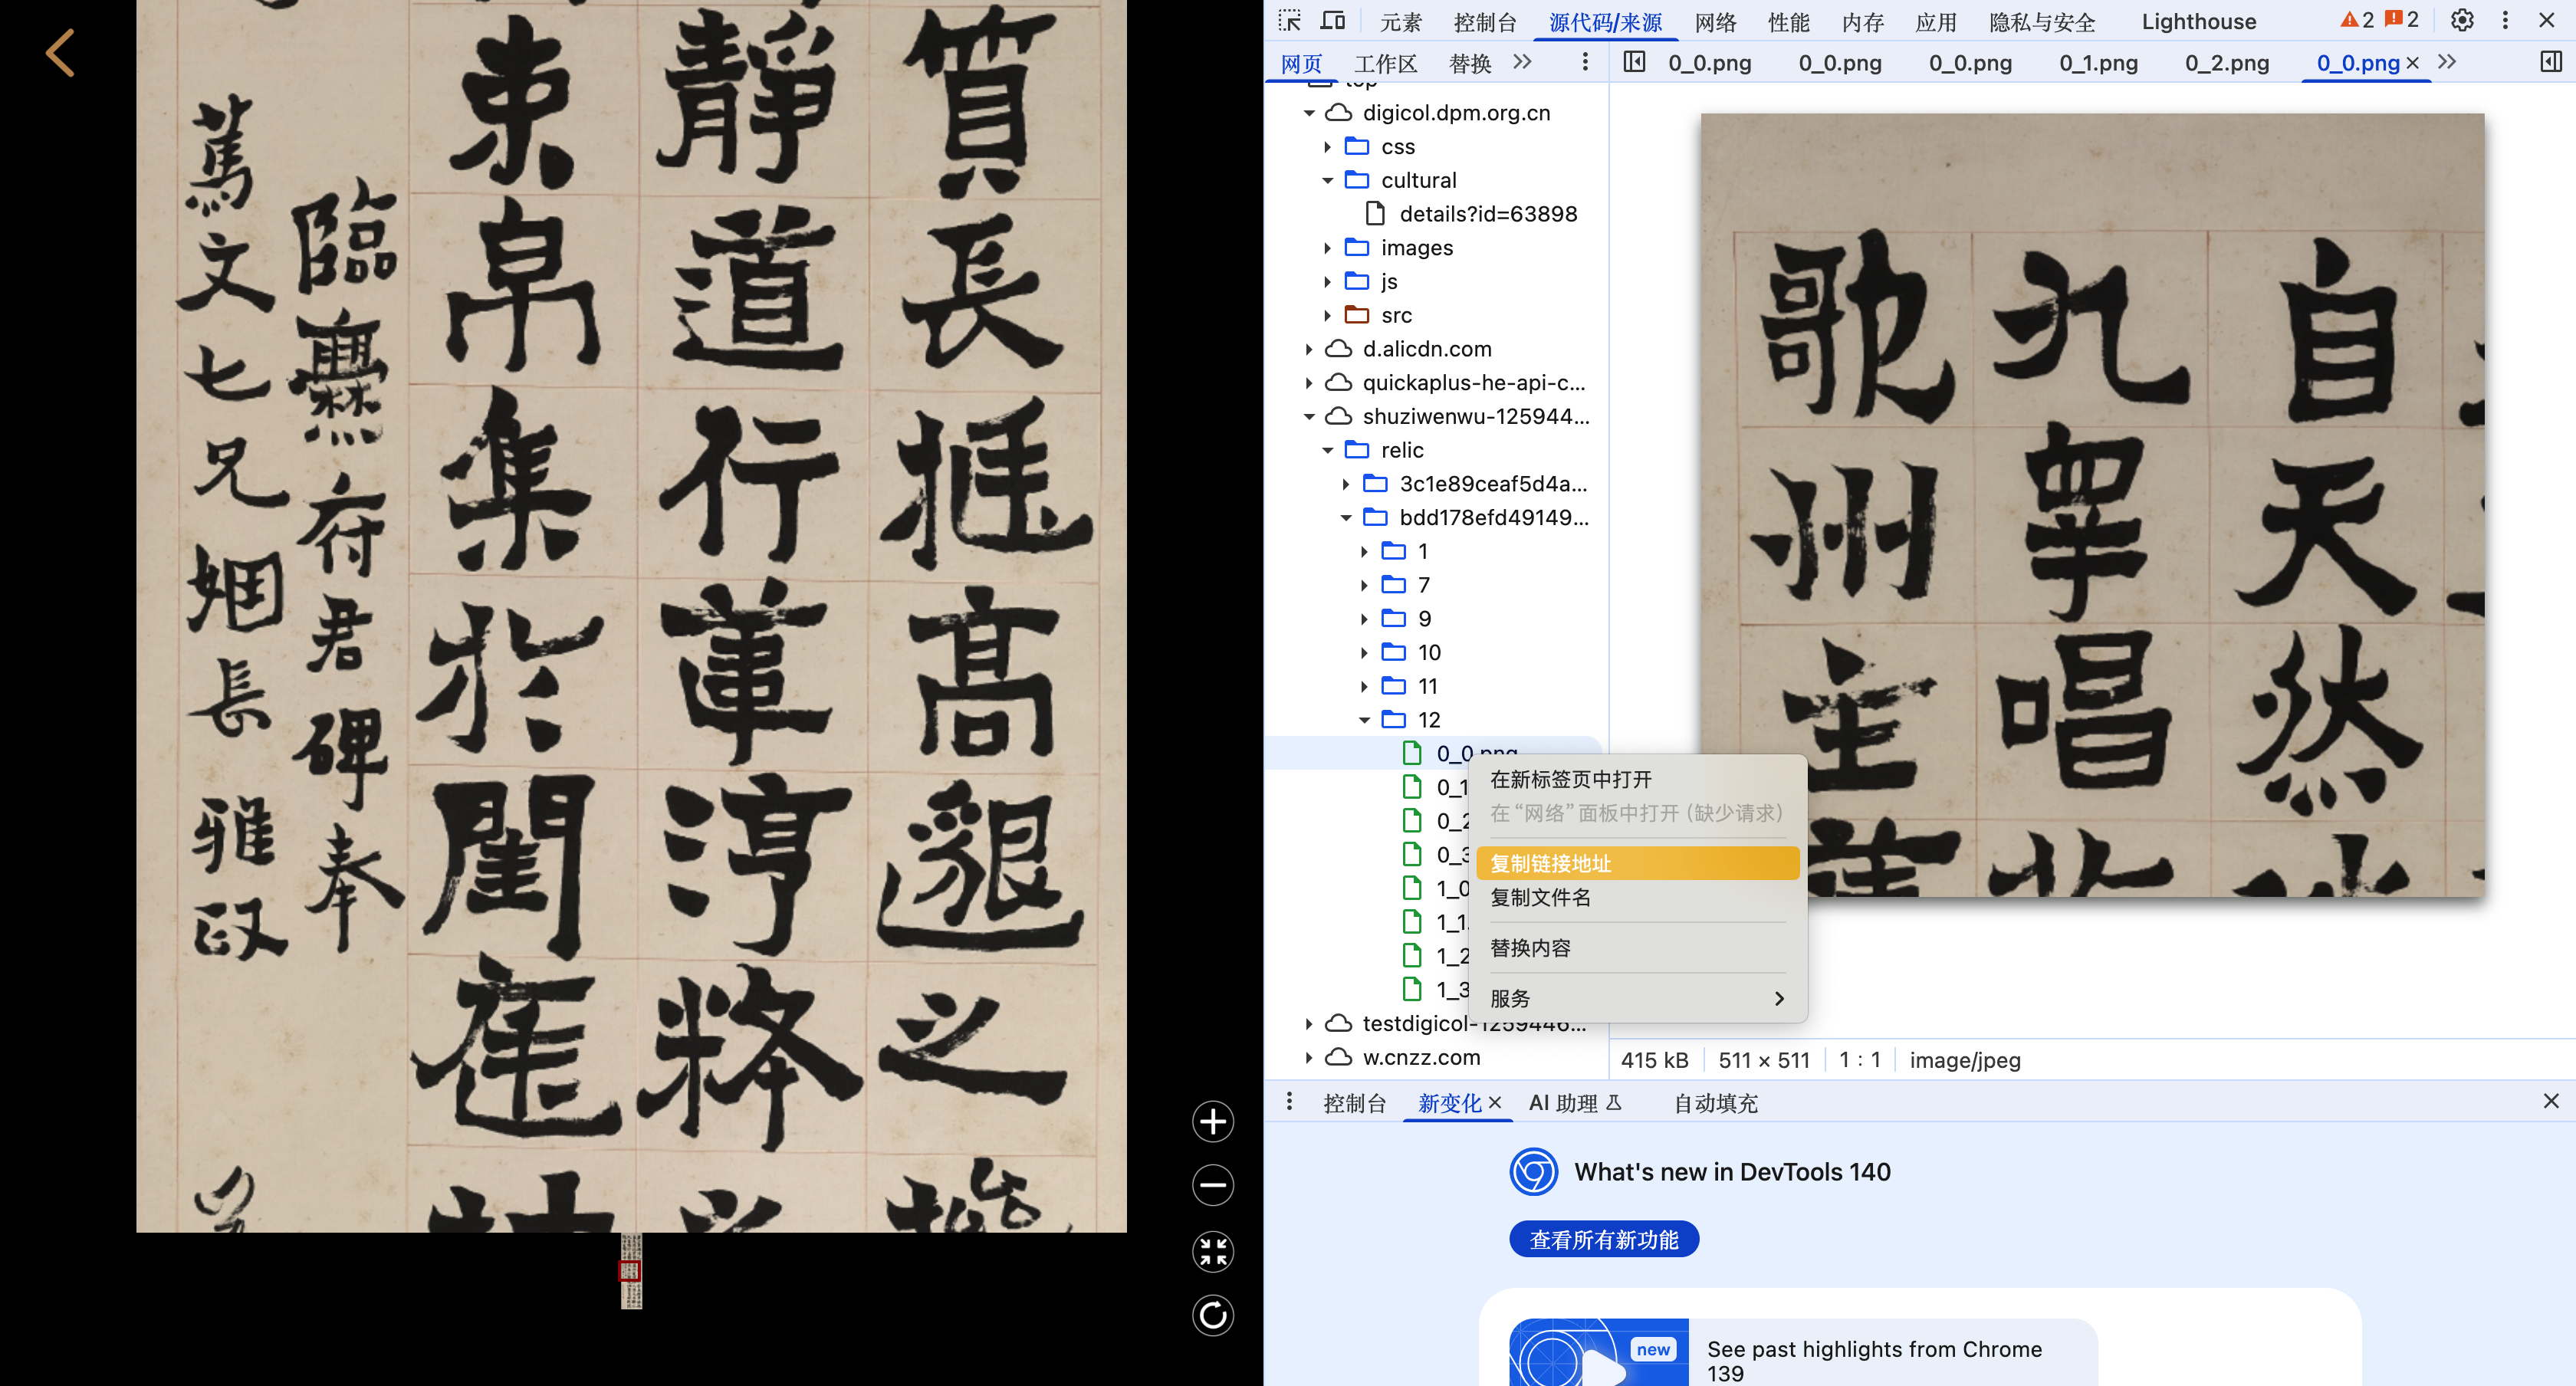 質長挺高邈之
靜道行葦淳粹
束帛集於閨庭
臨爨府君碑奉
篤文七兄姻長雅政
元素 控制台 源代码/来源 网络 性能 内存 应用 隐私与安全 Lighthouse 2 2
网页 工作区 替换
0_0.png 0_0.png 0_0.png 0_1.png 0_2.png 0_0.png
top
digicol.dpm.org.cn
css
cultural
details?id=63898
images
js
src
d.alicdn.com
quickaplus-he-api-c...
shuziwenwu-125944...
relic
3c1e89ceaf5d4a...
bdd178efd49149...
1
7
9
10
11
12
0_0.png
0_1
0_2
0_3
1_0
1_1
1_2
1_3
testdigicol-1259446...
w.cnzz.com
在新标签页中打开
在“网络”面板中打开 (缺少请求)
复制链接地址
复制文件名
替换内容
服务
自天然
九皋唱
歌州主
415 kB 511 × 511 1 : 1 image/jpeg
控制台 新变化 AI 助理 自动填充
What's new in DevTools 140
查看所有新功能
new
See past highlights from Chrome
139